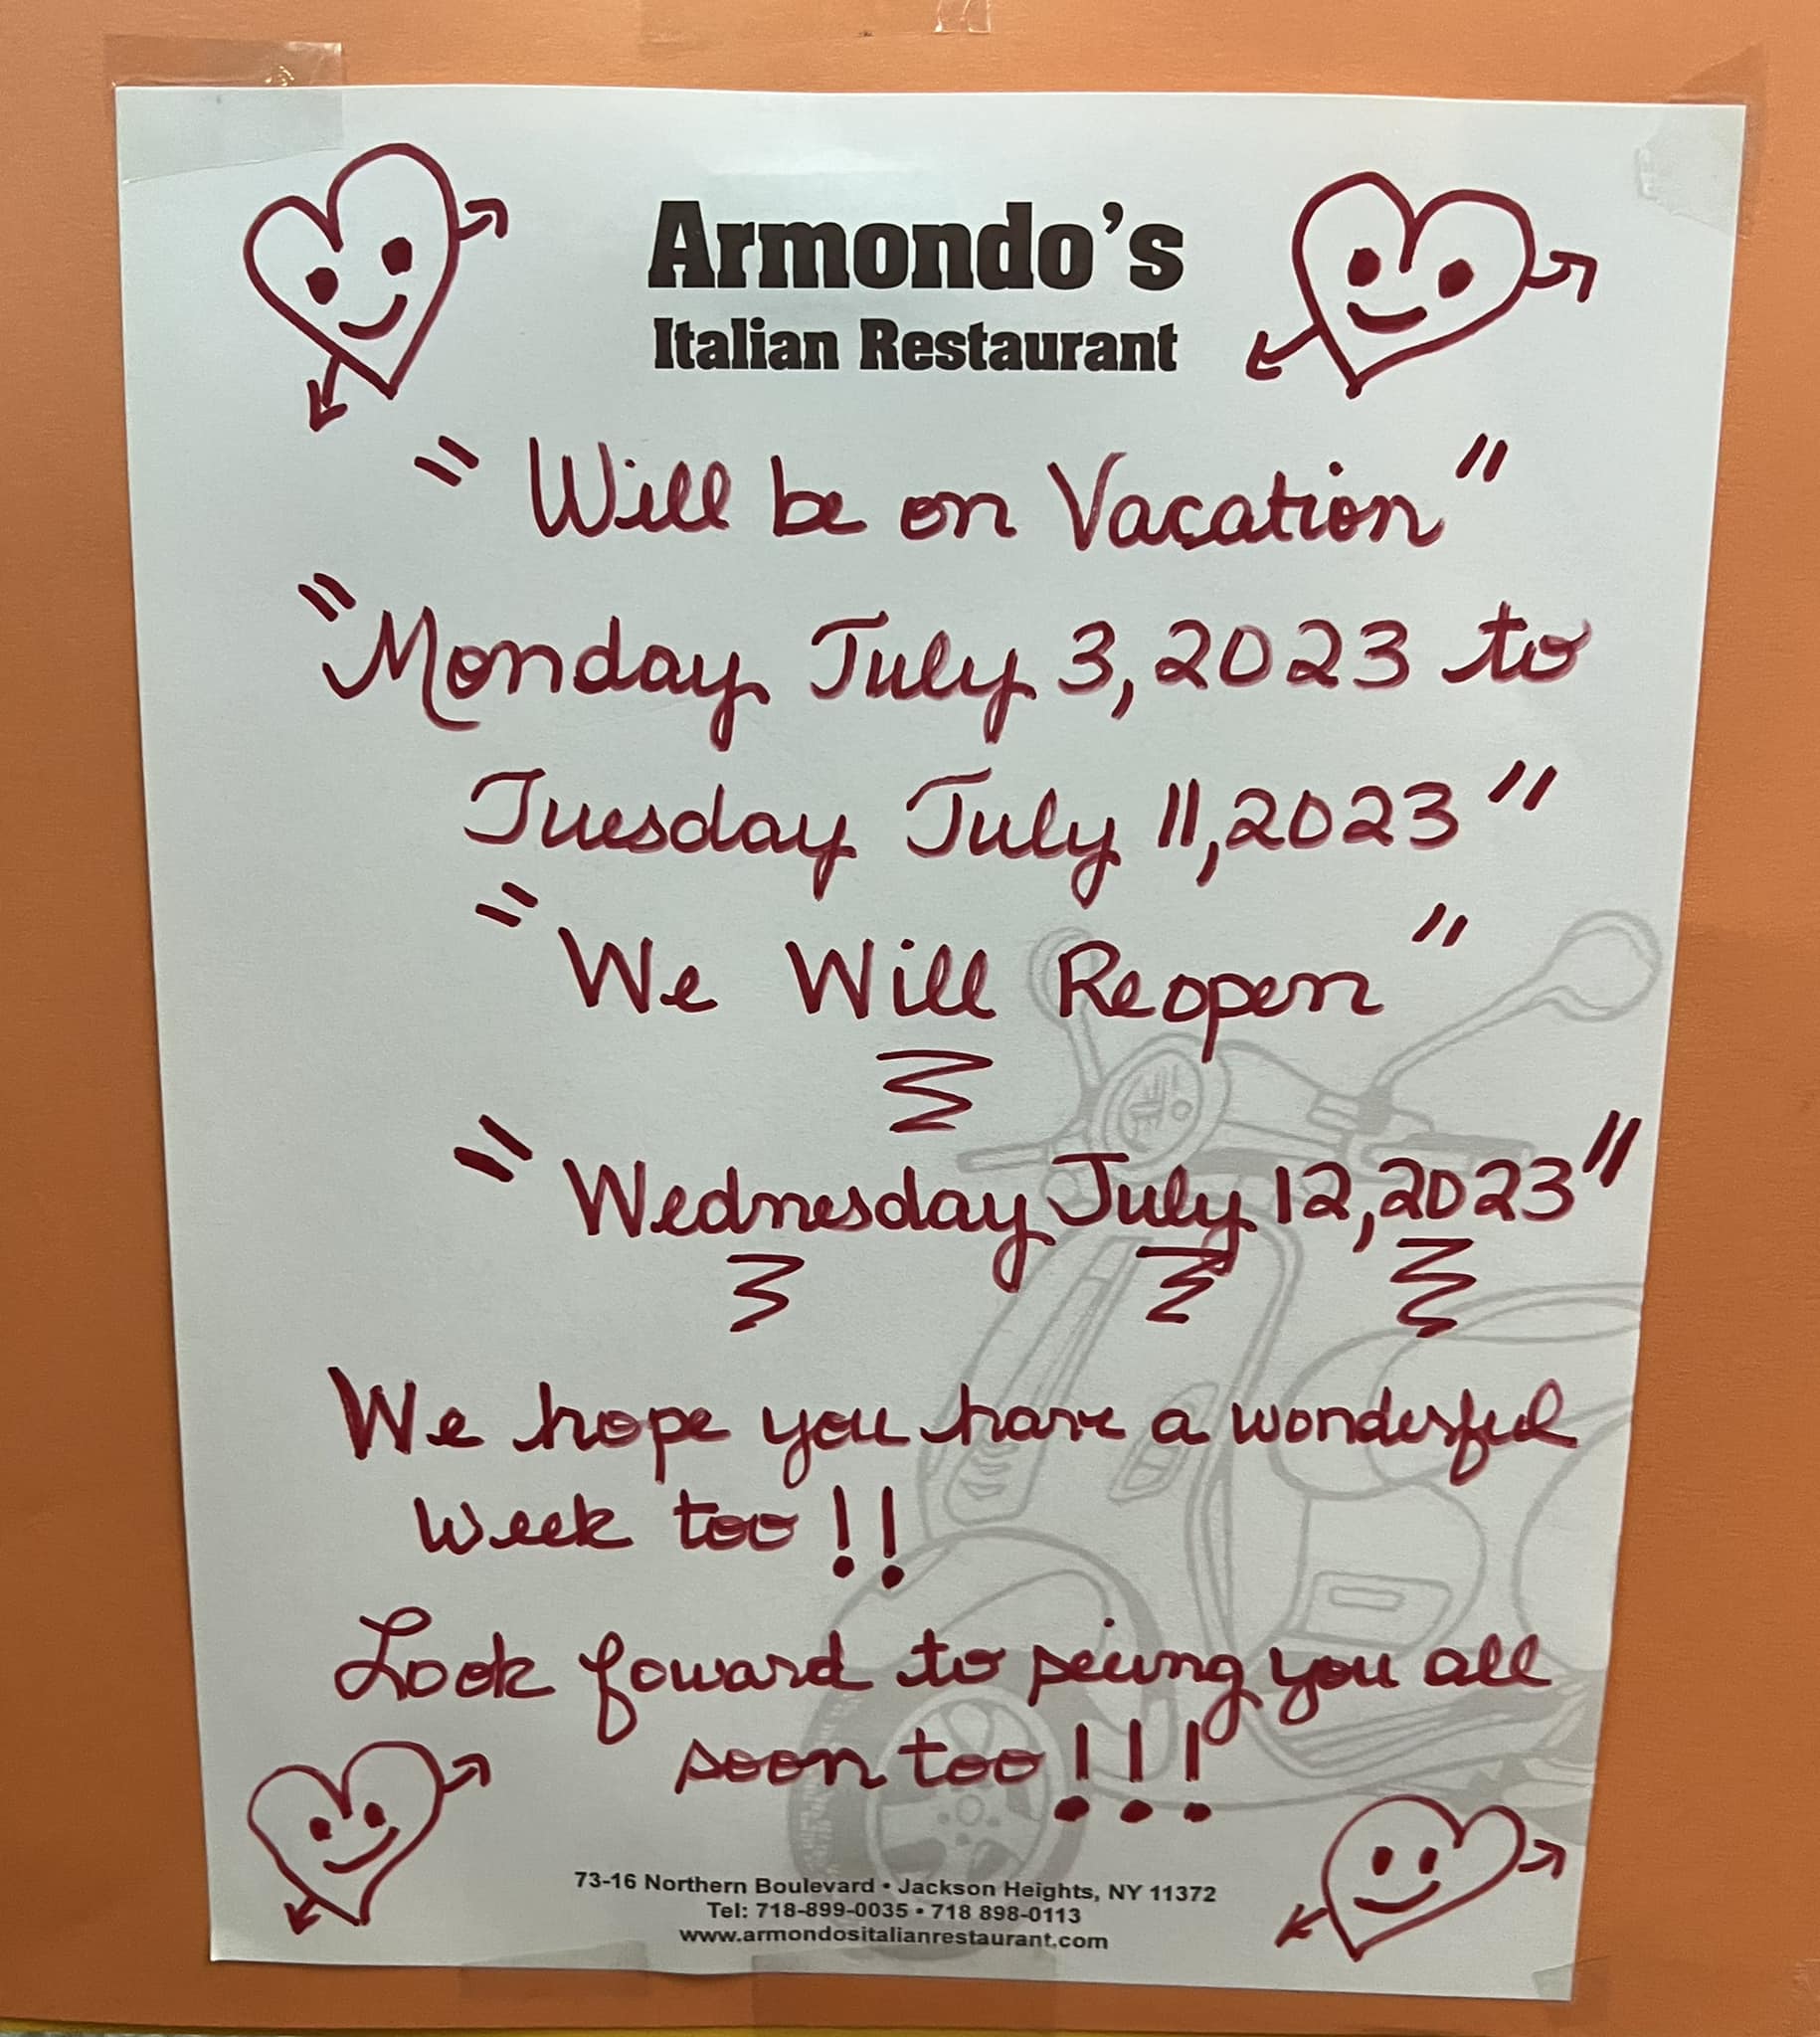 Armondo's
Italian Restaurant
"Will be on Vacation"
"Monday July 3, 2023 to
Tuesday July 11, 2023"
"We Will Reopen"
"Wednesday July 12, 2023"
We hope you have a wonderful
week too!!
Look foward to seeing you all
soon too!!!
73-16 Northern Boulevard • Jackson Heights, NY 11372
Tel: 718-899-0035 • 718 898-0113
www.armondositalianrestaurant.com